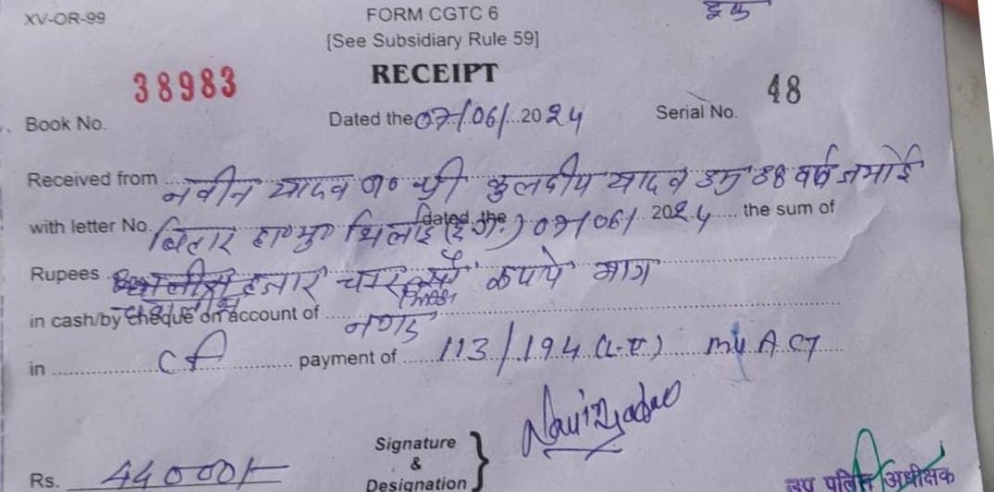 XV-OR-99
FORM CGTC 6
[See Subsidiary Rule 59]
RECEIPT
38983
48
Book No.
Dated the 07/06/ 2024
Serial No.
Received from नवीन यादव श्री कुलदीप यादव वर्ष जमोई
with letter No. बिहार भिलाई dated the 07/06/ 2024 the sum of
Rupees हजार रूपये मात्र
in cash/by cheque on account of नगद
in payment of 113/194 (1-ए) mv ACT
Signature
&
Designation
Rs. 44000/-
उप पुलिस अधीक्षक